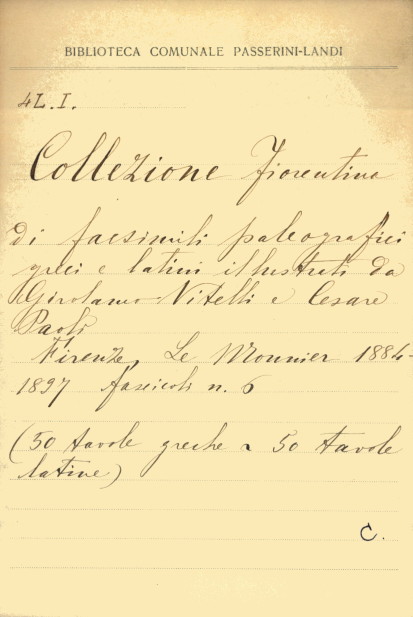 BIBLIOTECA COMUNALE PASSERINI-LANDI
4L.I.
Collezione Fiorentina
di facsimili paleografici
greci e latini illustrati da
Girolamo Vitelli e Cesare
Paoli
Firenze, Le Monnier 1884-
1897 fascicoli n. 6
(50 tavole greche e 50 tavole
latine)
C.